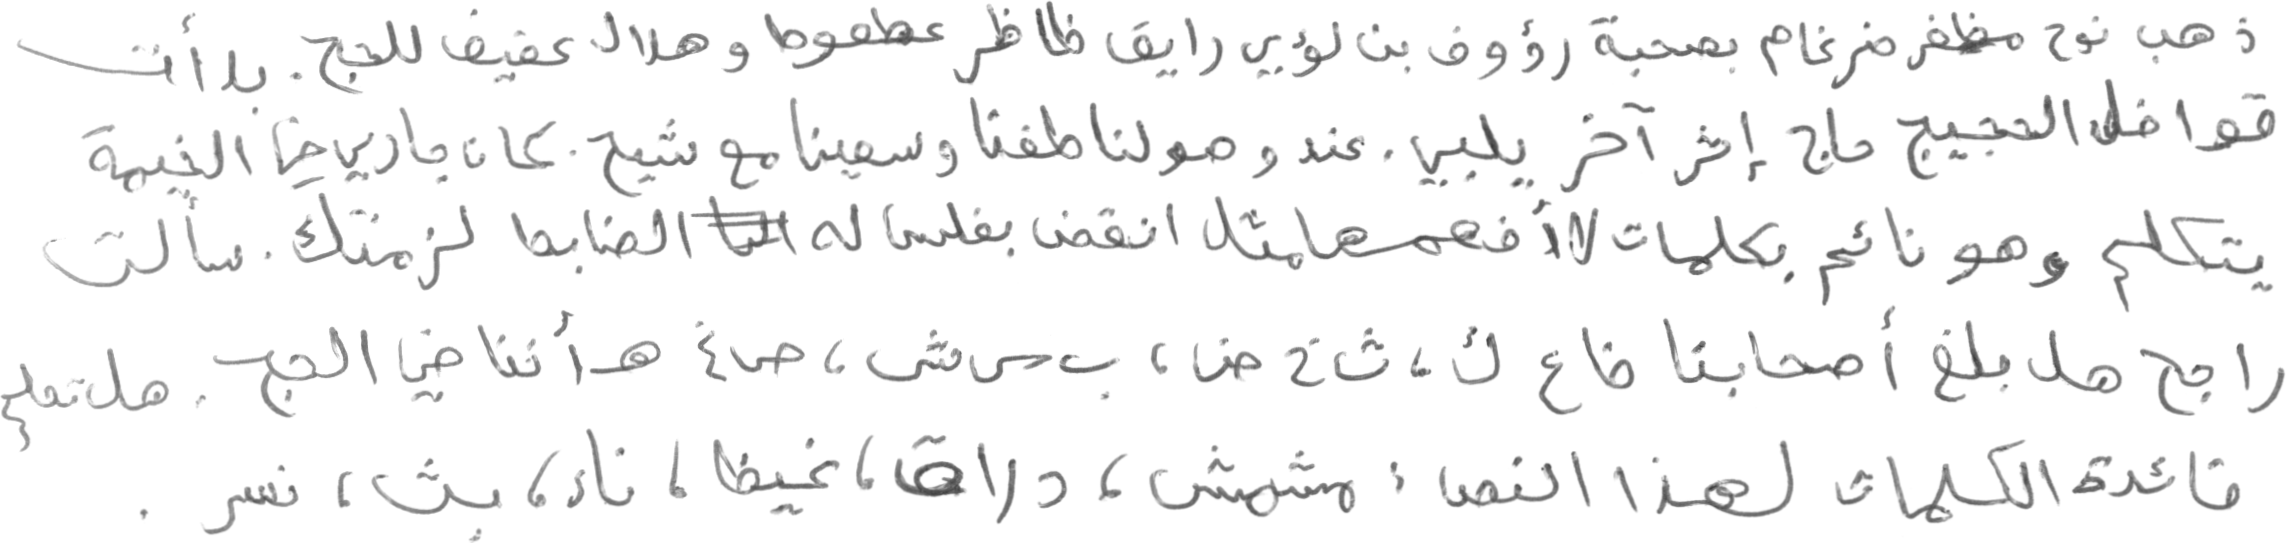 ذهب نوح مظفر ضرغام بصحبة رؤوف بن لؤي رايق ظافر عطعوط وهلال عفيف للحج. بدأت
قوافل الحجيج حاج إثر آخر يلبي. عند وصولنا طفنا وسعينا مع شيخ. كان جاري في الخيمة
يتكلم وهو نائم بكلمات لا أفهمها مثل انقض بفلس له الضابط لزمتك. سألت
راجح هل بلغ أصحابنا ظ ع ك، ث خ ض، ب س ش، ص غ هـ أننا في الحج. هل تعلم
فائدة الكلمات لهذا النص: مشمش، دراق، غيظ، ناء، بث، نسر.